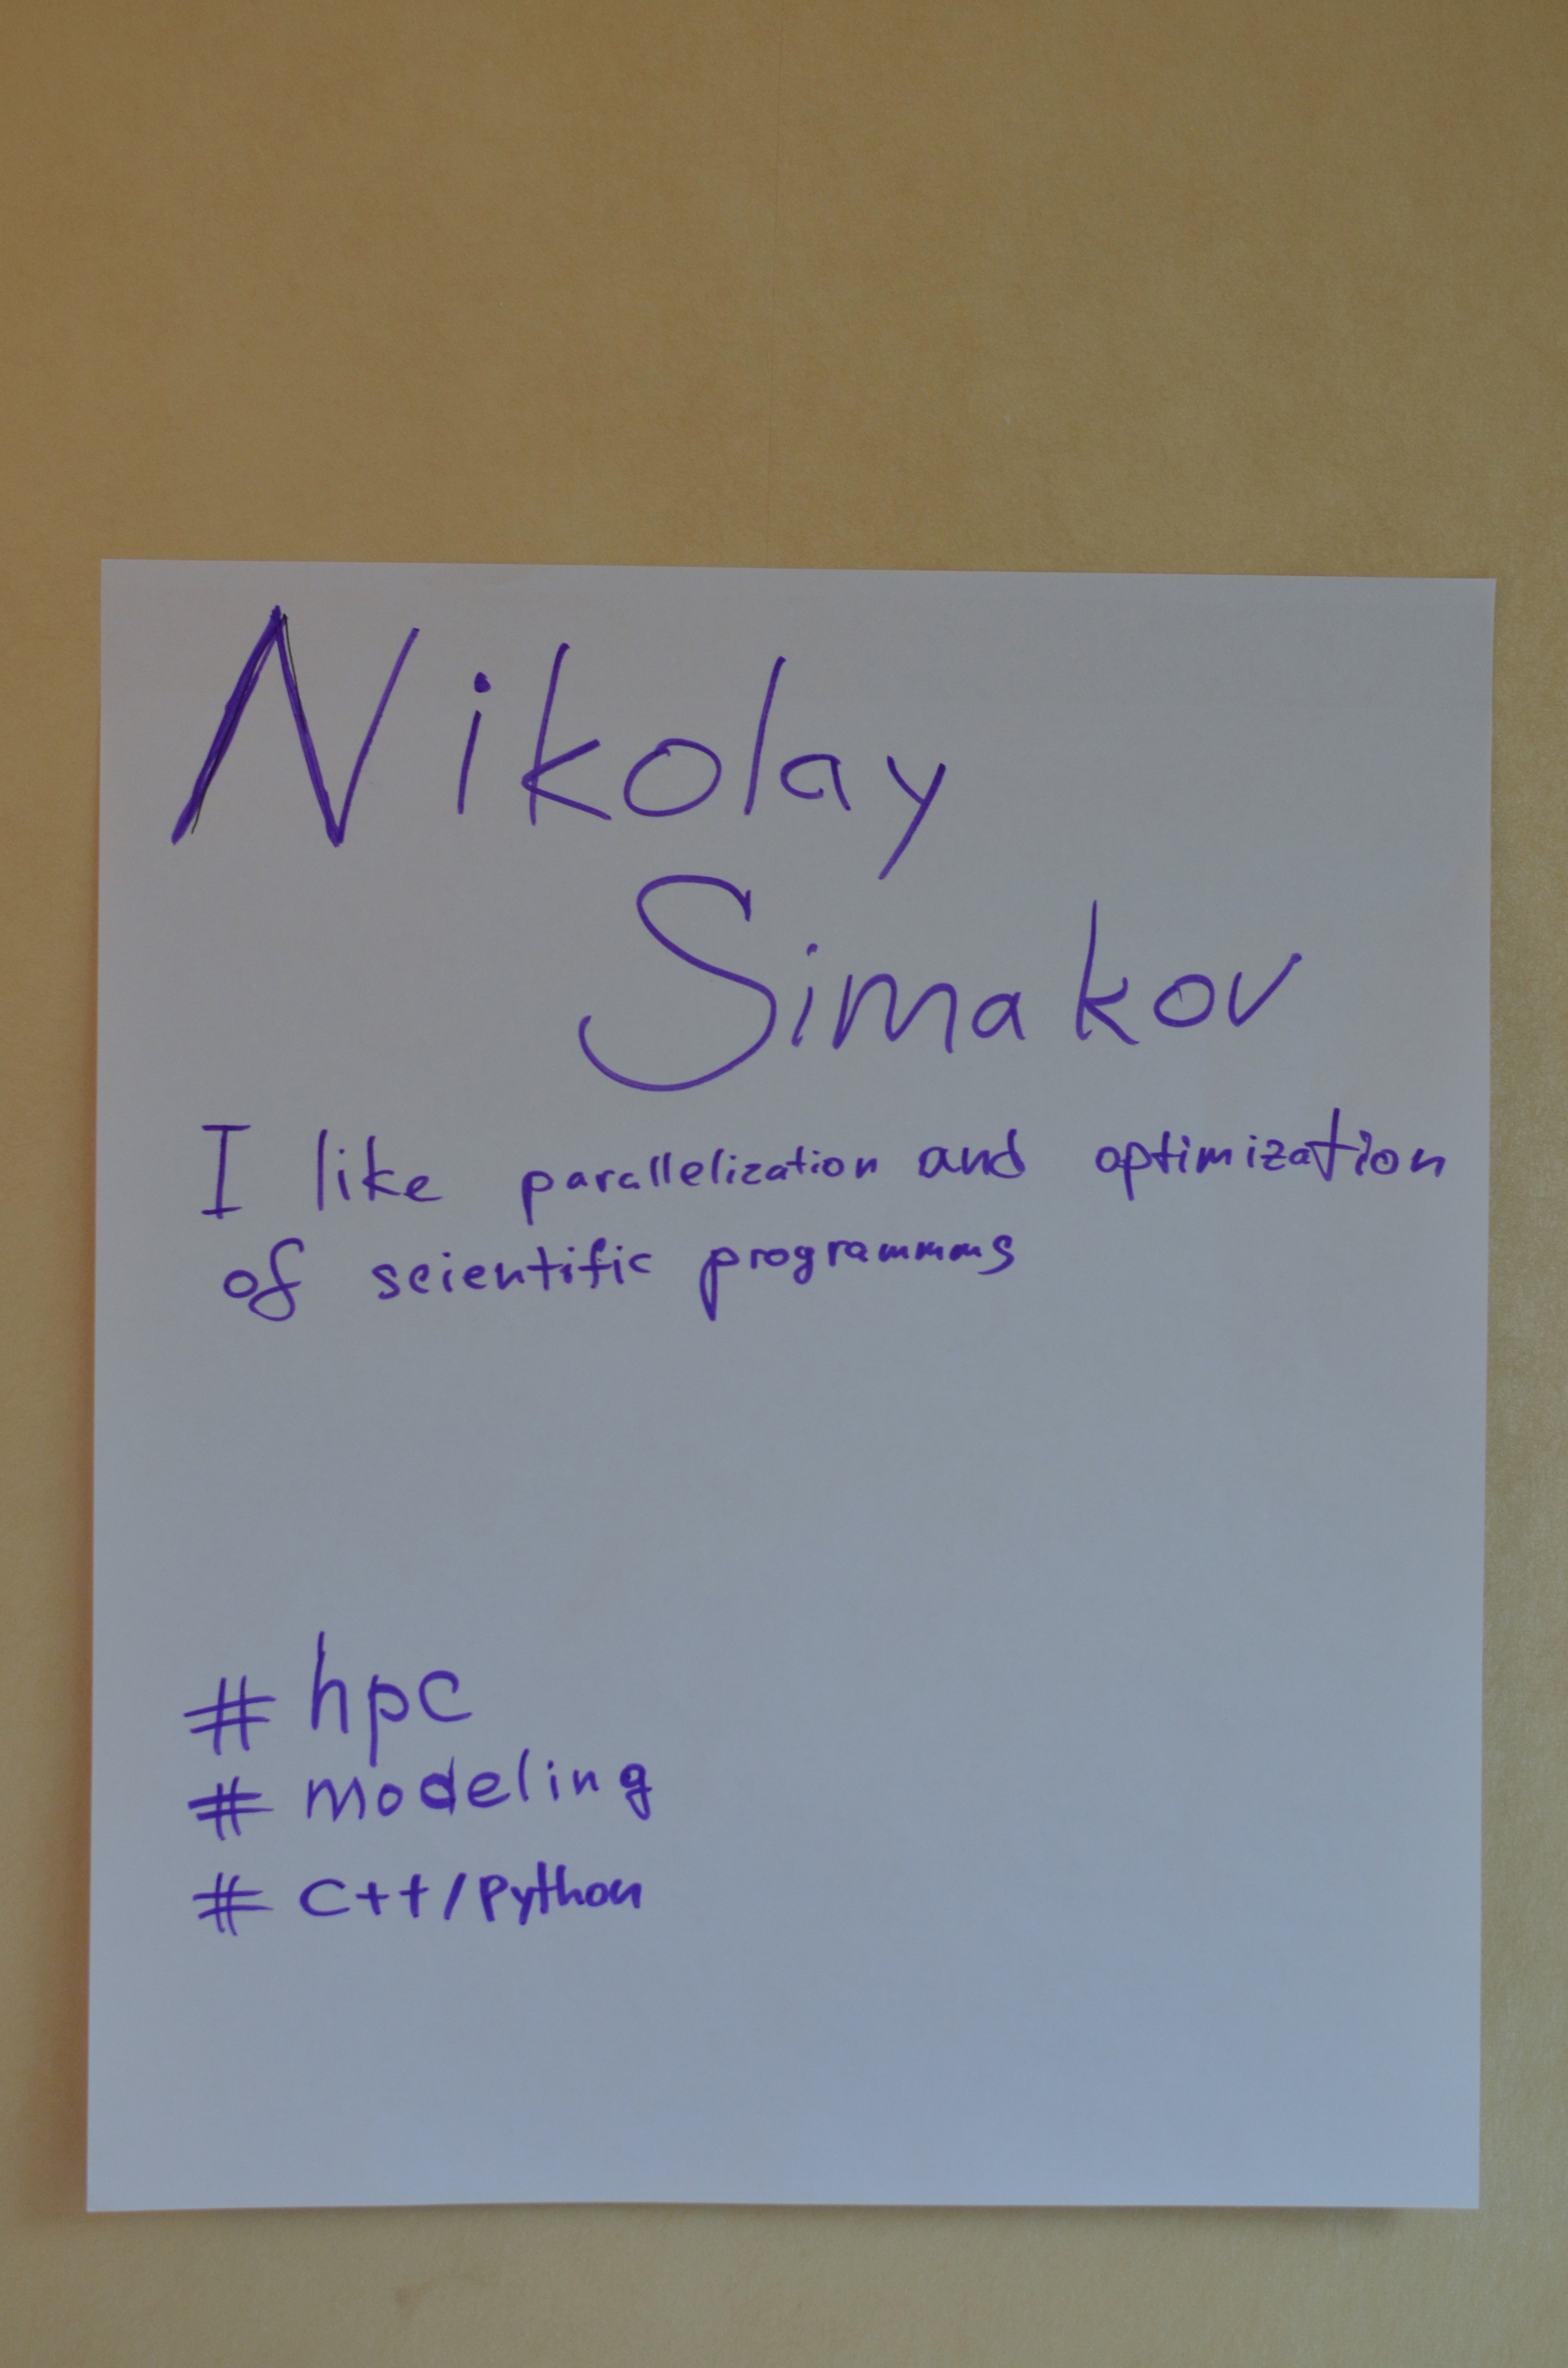 Nikolay
Simakov
I like parallelization and optimization
of scientific programms
# hpc
# modeling
# C++/Python